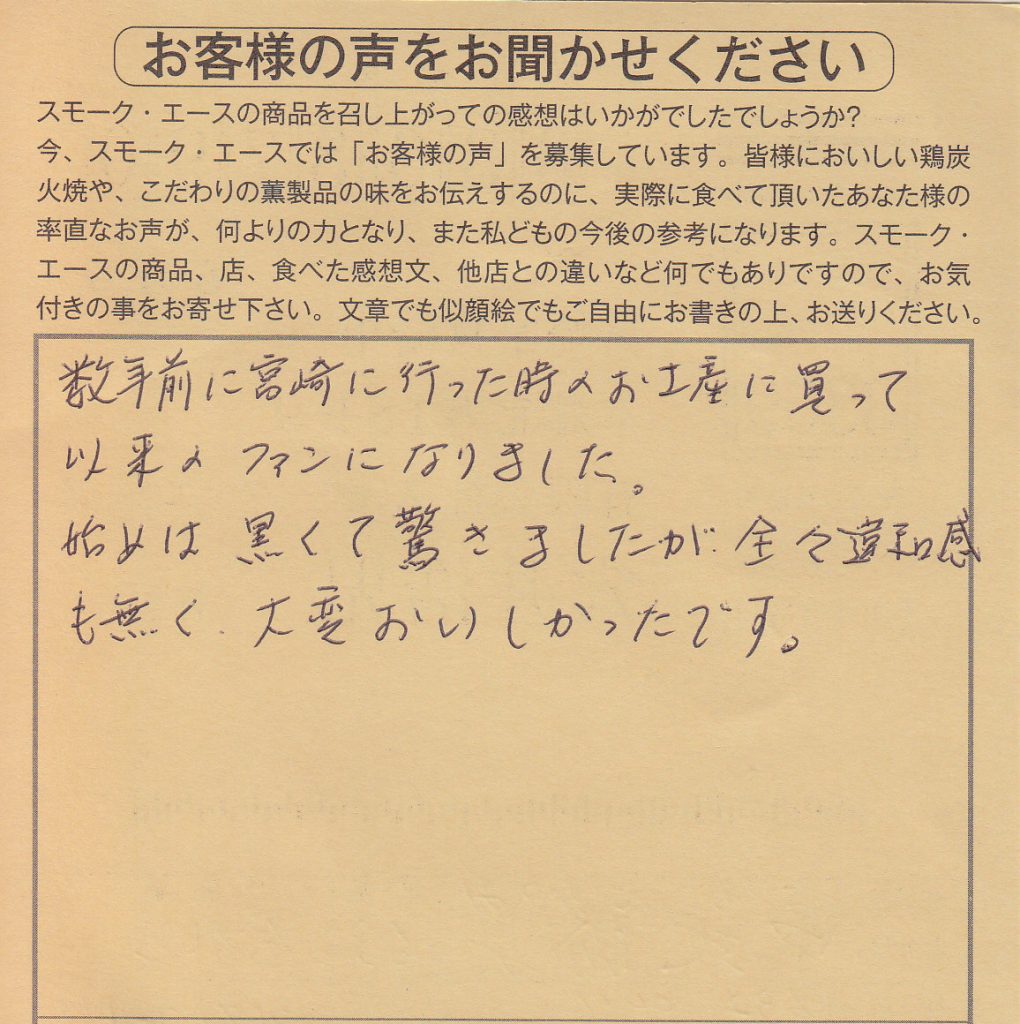 お客様の声をお聞かせください
スモーク・エースの商品を召し上がっての感想はいかがでしたでしょうか?
今、スモーク・エースでは「お客様の声」を募集しています。皆様においしい鶏炭
火焼や、こだわりの薫製品の味をお伝えするのに、実際に食べて頂いたあなた様の
率直なお声が、何よりの力となり、また私どもの今後の参考になります。スモーク・
エースの商品、店、食べた感想文、他店との違いなど何でもありですので、お気
付きの事をお寄せ下さい。文章でも似顔絵でもご自由にお書きの上、お送りください。
数年前に宮崎に行った時のお土産に買って
以来のファンになりました。
始めは黒くて驚きましたが、全々違和感
も無く、大変おいしかったです。